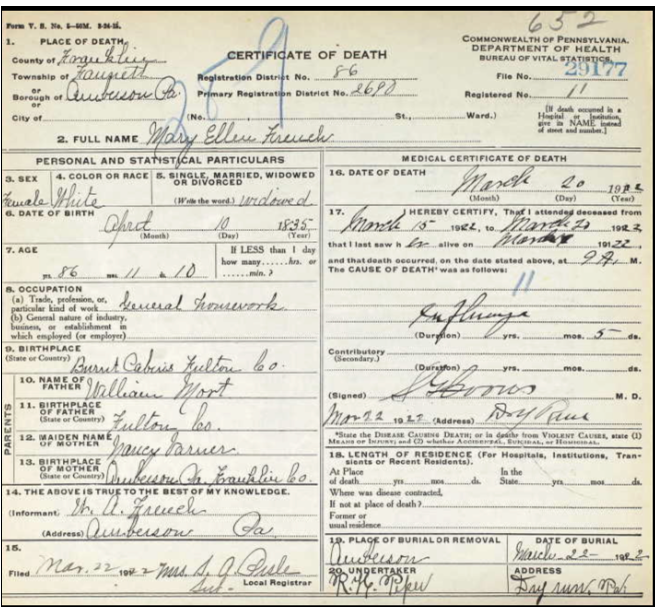 Form V. S. No. 5—50M. 3-24-21.
652
1. PLACE OF DEATH,
County of Franklin
Township of Fannett
or
Borough of Amberson Pa.
or
City of
CERTIFICATE OF DEATH
Registration District No. 86
Primary Registration District No. 2690
(No. St., Ward.)
COMMONWEALTH OF PENNSYLVANIA.
DEPARTMENT OF HEALTH
BUREAU OF VITAL STATISTICS
File No. 29177
Registered No. 11
[If death occurred in a
Hospital or Institution,
give its NAME instead
of street and number.]
2. FULL NAME Mary Ellen French
PERSONAL AND STATISTICAL PARTICULARS
3. SEX 4. COLOR OR RACE 5. SINGLE, MARRIED, WIDOWED
OR DIVORCED
Female White (Write the word.) widowed
6. DATE OF BIRTH
April 10 1835
(Month) (Day) (Year)
7. AGE If LESS than 1 day
how many......hrs. or
yrs. 86 mos. 11 ds. 10 ......min.?
8. OCCUPATION
(a) Trade, profession, or,
particular kind of work General housework
(b) General nature of industry,
business, or establishment in
which employed (or employer)
9. BIRTHPLACE
(State or Country) Burnt Cabins Fulton Co.
PARENTS
10. NAME OF
FATHER William Mort
11. BIRTHPLACE
OF FATHER
(State or Country) Fulton Co.
12. MAIDEN NAME
OF MOTHER Nancy
13. BIRTHPLACE
OF MOTHER
(State or Country) Amberson Pa. Franklin Co.
14. THE ABOVE IS TRUE TO THE BEST OF MY KNOWLEDGE.
(Informant) W. A. French
(Address) Amberson Pa
15.
Filed Mar. 22 1922 Mrs. S. A.
Local Registrar
MEDICAL CERTIFICATE OF DEATH
16. DATE OF DEATH
March 20 1922
(Month) (Day) (Year)
17. I HEREBY CERTIFY, That I attended deceased from
March 15 1922, to March 20 1922
that I last saw her alive on March 1922,
and that death occurred, on the date stated above, at 9 A. M.
The CAUSE OF DEATH* was as follows:
11
Influenza
(Duration) yrs. mos. 5 ds.
Contributory
(Secondary.)
(Duration) yrs. mos. ds.
(Signed) M. D.
Mar 22 1922 (Address) Dry Run
*State the DISEASE CAUSING DEATH; or in deaths from VIOLENT CAUSES, state (1)
MEANS OF INJURY; and (2) whether ACCIDENTAL, SUICIDAL, or HOMICIDAL.
18. LENGTH OF RESIDENCE (For Hospitals, Institutions, Tran-
sients or Recent Residents).
At Place In the
of death yrs. mos. ds. State yrs. mos. ds.
Where was disease contracted,
If not at place of death?
Former or
usual residence
19. PLACE OF BURIAL OR REMOVAL DATE OF BURIAL
Amberson March 22 1922
20. UNDERTAKER ADDRESS
R. K. Piper Dry run, Pa